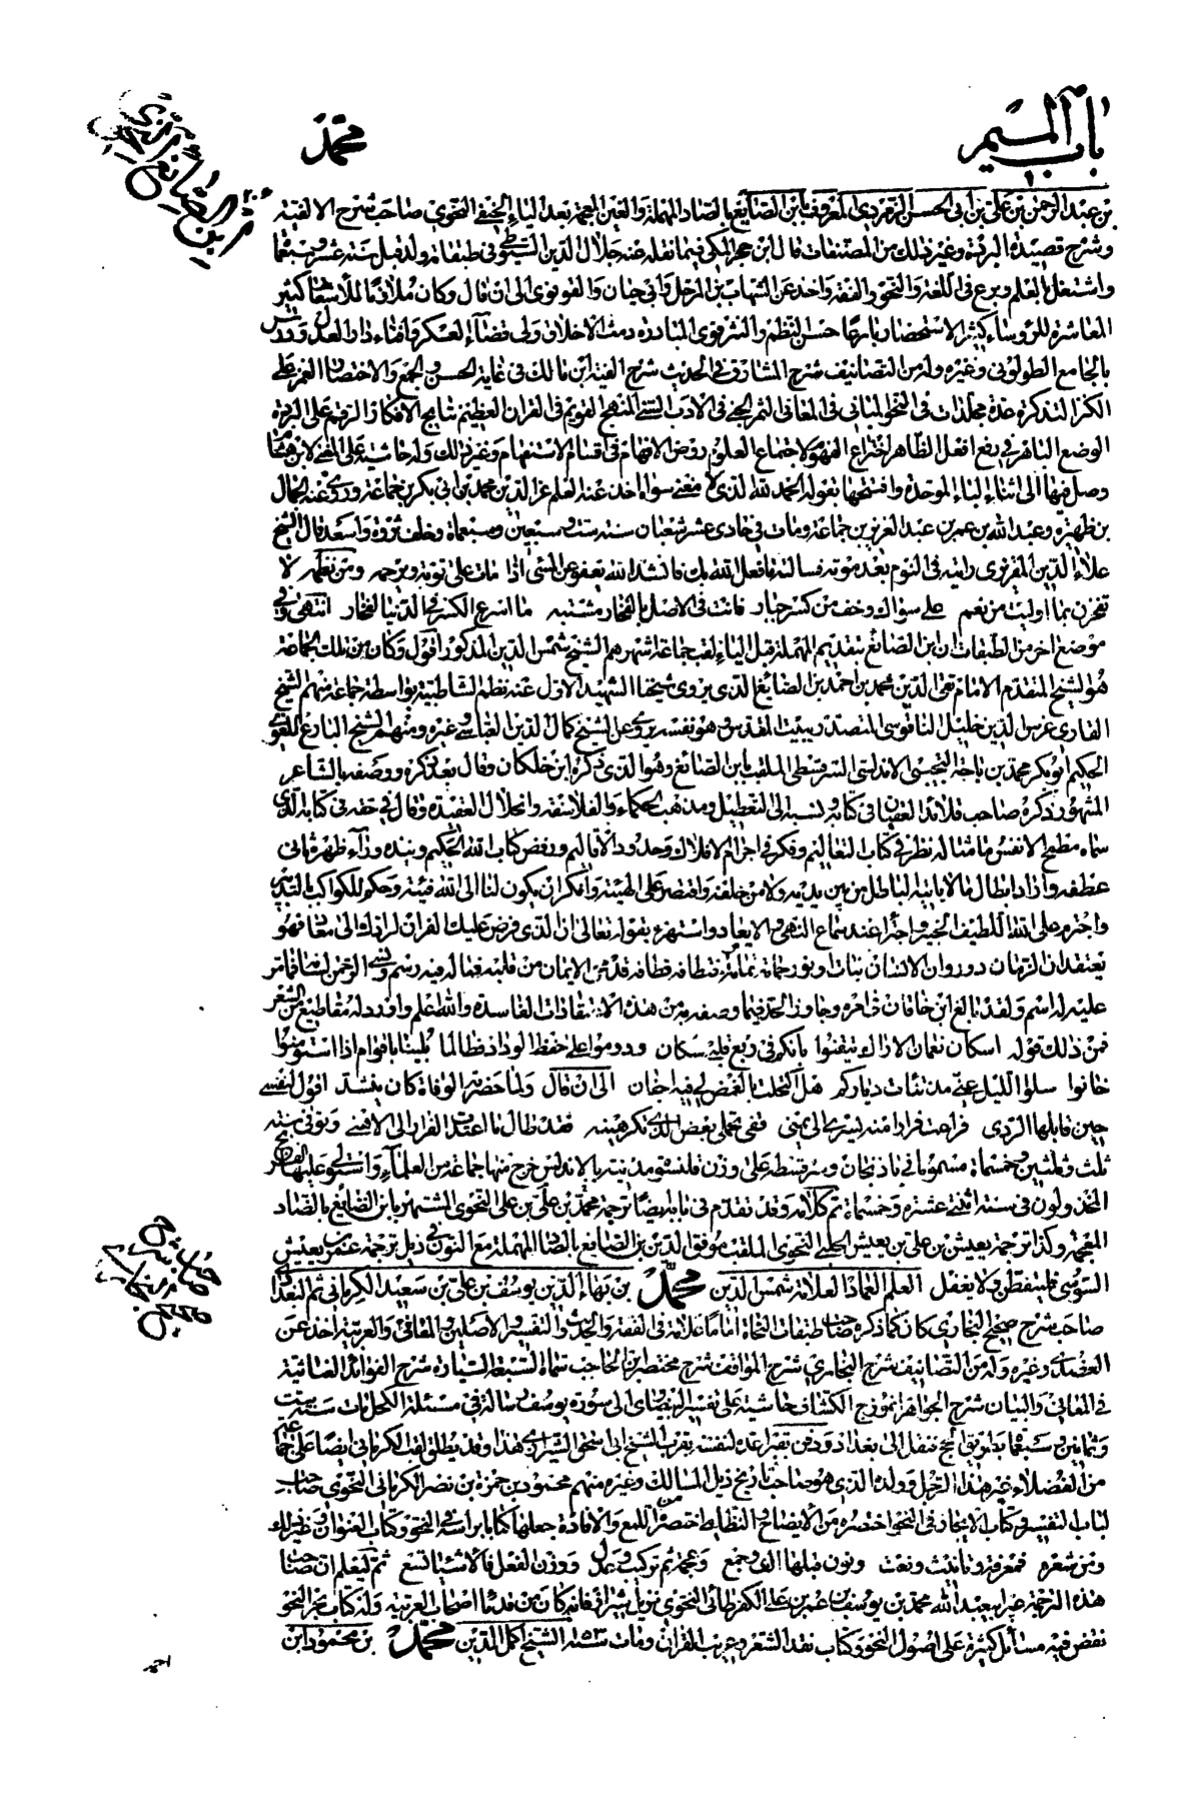 باب الميم
محمد
ابن الصائغ الزمردي
بن عبد الرحمن بن علي بن أبي الحسن الزمردي المعروف بابن الصايغ بالصاد المهملة والغين المعجمة بعد الياء الحنفي النحوي صاحب شرح الالفية
وشرح قصيدة البردة وغير ذلك من المصنفات قال ابن حجر المكي فيما نقله عنه جلال الدين السيوطي في طبقاته ولد قبل سنة عشر وسبعمائة
واشتغل بالعلم وبرع في اللغة والنحو والفقه واخذ عن الشهاب بن المرحل وابي حيان والقونوي الى ان قال وكان ملازما للاشتغال كثير
المعاشرة للرؤساء كثير الاستحضار بارعا حسن النظم والنثر قوي البادرة دمث الاخلاق ولي قضاء العسكر وافتاء دار العدل ودرس
بالجامع الطولوني وغيره وله من التصانيف شرح المشارق في الحديث شرح الفية ابن مالك في غاية الحسن والجمع والاختصار الغمز على
الكنز التذكرة عدة مجلدات في النحو المباني في المعاني الثمر الجني في الادب السني المنهج القويم في القران العظيم نتايج الافكار الرقم على البردة
الوضع الباهر في رفع افعل الظاهر اختراع الفهوم لاجتماع العلوم روض الافهام في اقسام الاستفهام وغير ذلك وله حاشية على المغني لابن هشام
وصل فيها الى اثناء الباء الموحدة وافتتحها بقوله الحمد لله الذي لا مغني سواه اخذ عنه العلم عز الدين محمد بن ابي بكر بن جماعة وروى عنه الجمال
بن ظهيرة وعبد الله بن عمر بن عبد العزيز بن جماعة ومات في حادي عشر شعبان سنة ست وسبعين وسبعمائة وخلف ثروة واسعة قال الشيخ
علاء الدين المقريزي رايته في النوم بعد موته فسالته ما فعل الله بك فانشد الله يعفو عن المسي اذا مات على توبة ويرحمه ومن نظمه لا
تفخرن بما اوليت من نعم على سواك وخف من كسر جبار فانت في الاصل بالفخار مشتبه ما اسرع الكسر في الدنيا لفخار انتهى وفي
موضع اخر من الطبقات ان ابن الصائغ بتقديم المهملة قبل الياء لقب جماعة اشهرهم الشيخ شمس الدين المذكور اقول وكان من تلك الجماعة
هو الشيخ المتقدم الامام تقي الدين محمد بن احمد بن الصايغ الذي يروي شيخنا الشهيد الاول عنه نظم الشاطبية بواسطة جماعة منهم الشيخ
القاري غرس الدين خليل الناقوسي المتصدر ببيت المقدس وهو نفسه يروي عن الشيخ كمال الدين العباسي وغيره ومنهم الشيخ البارع اللغوي
الحكيم ابو بكر محمد بن باجة التجيبي الاندلسي السرقسطي الملقب بابن الصائغ وهو الذي ذكره ابن خلكان وقال بعد ذكره ووصفه بالشاعر
المشهور ذكره صاحب قلائد العقيان في كتابه ونسبه الى التعطيل ومذهب الحكماء والفلاسفة وانحلال العقيدة وقال في حقه في كتابه الذي
سماه مطمح الانفس ما مثاله نظر في كتاب التعاليم وفكر في اجرام الافلاك وحدود الاقاليم ورفض كتاب الله الحكيم ونبذه وراء ظهره ثاني
عطفه واراد ابطال ما لا ياتيه الباطل من بين يديه ولا من خلفه واقتصر على الهيئة وانكر ان يكون لنا الى الله فيئة وحكم للكواكب بالتدبير
واجترم على الله اللطيف الخبير واجترا عند سماع النهي والايعاد واستهزء بقوله تعالى ان الذي فرض عليك القران لرادك الى معاد فهو
يعتقد ان الزمان دور وان الانسان نبات ونور حمامه تمامه واختطافه قطافه قد محي الايمان من قلبه فما له فيه رسم ونسي الرحمن لسانه فما تمر
عليه له اسم ولقد بالغ ابن خاقان في امره وجاوز الحد فيما وصفه به من هذه الاعتقادات الفاسدة والله اعلم واورد له مقاطيع من الشعر
فمن ذلك قوله اسكان نعمان الاراك تيقنوا بانكم في ربع قلبي سكان ودوموا على حفظ الوداد فطالما بلينا باقوام اذا استومنوا
خانوا سلوا الليل عني مذ تناءت دياركم هل اكتحلت بالغمض لي فيه اجفان الى ان قال ولما حضرته الوفاة كان ينشد اقول لنفسي
حين قابلها الردى فراعت فرارا منه يسرى الى يمنى قفي تحملي بعض الذي تكرهينه فقد طال ما اعتدت الفرار الى الاهنى وتوفي سنة
ثلث وثلثين وخمسمائة مسموما في باذنجان وسرقسطة على وزن قلنسوة مدينة بالاندلس خرج منها جماعة من العلماء واستولى عليها الفرنج
المخذولون في سنة اثنتي عشرة وخمسمائة تم كلامه وقد تقدم في بابه ايضا ترجمة محمد بن علي بن علي النحوي المشتهر بابن الضايع بالضاد
المعجمة وكذا ترجمة يعيش بن علي بن يعيش الحلبي النحوي الملقب بموفق الدين بن الصانع بالصاد المهملة مع النون في ذيل ترجمة عمر بن يعيش
السوسي فليتفطن ولا يغفل العلم العماد العلامة شمس الدين محمد بن بهاء الدين يوسف بن علي بن سعيد الكرماني ثم البغدادي
صاحب شرح صحيح البخاري
صاحب شرح صحيح البخاري كان كما ذكره صاحب طبقات النحاة اماما علامة في الفقه والحديث والتفسير والاصلين والمعاني والعربية اخذ عن
العضد وغيره وله من التصانيف شرح البخاري شرح المواقف شرح مختصر ابن الحاجب سماه السبعة السيارة شرح الفوائد الغياثية
في المعاني والبيان شرح الجواهر انموذج الكشاف حاشية على تفسير البيضاوي الى سورة يوسف رسالة في مسئلة الكحل مات سنة ست
وثمانين وسبعمائة بطريق الحج فنقل الى بغداد ودفن بقبر اعده لنفسه بقرب الشيخ ابي اسحق الشيرازي هذا وقد يطلق لقب الكرماني ايضا على جماعة
من الفضلاء غير هذا الرجل وولده الذي هو صاحب تاريخ ذيل المسالك وغيره منهم محمود بن حمزة بن نصر الكرماني النحوي صاحب
لباب التفسير وكتاب الايجاز في النحو اختصره من الايضاح والنظامي اختصره من اللمع والافادة جعلها كتابا براسه في النحو وكتاب العنوان وغير ذلك
ومن شعره فمعرفة وتانيث ونعت ونون قبلها الف وجمع وعجمة ثم تركيب وعدل ووزن الفعل فالاشياء تسع ثم ليعلم ان صاحب
هذه الترجمة غير ابي عبد الله محمد بن يوسف بن عمر بن علي الكفرطابي النحوي نزيل شيراز فانه كان من قدماء اصحاب العربية وله كتاب بحر النحو
نقض فيه مسائل كثيرة على اصول النحو وكتاب نقد الشعر وغريب القران ومات سنة ٥٥٣ الشيخ اكمل الدين محمد بن محمود ابن
احمد